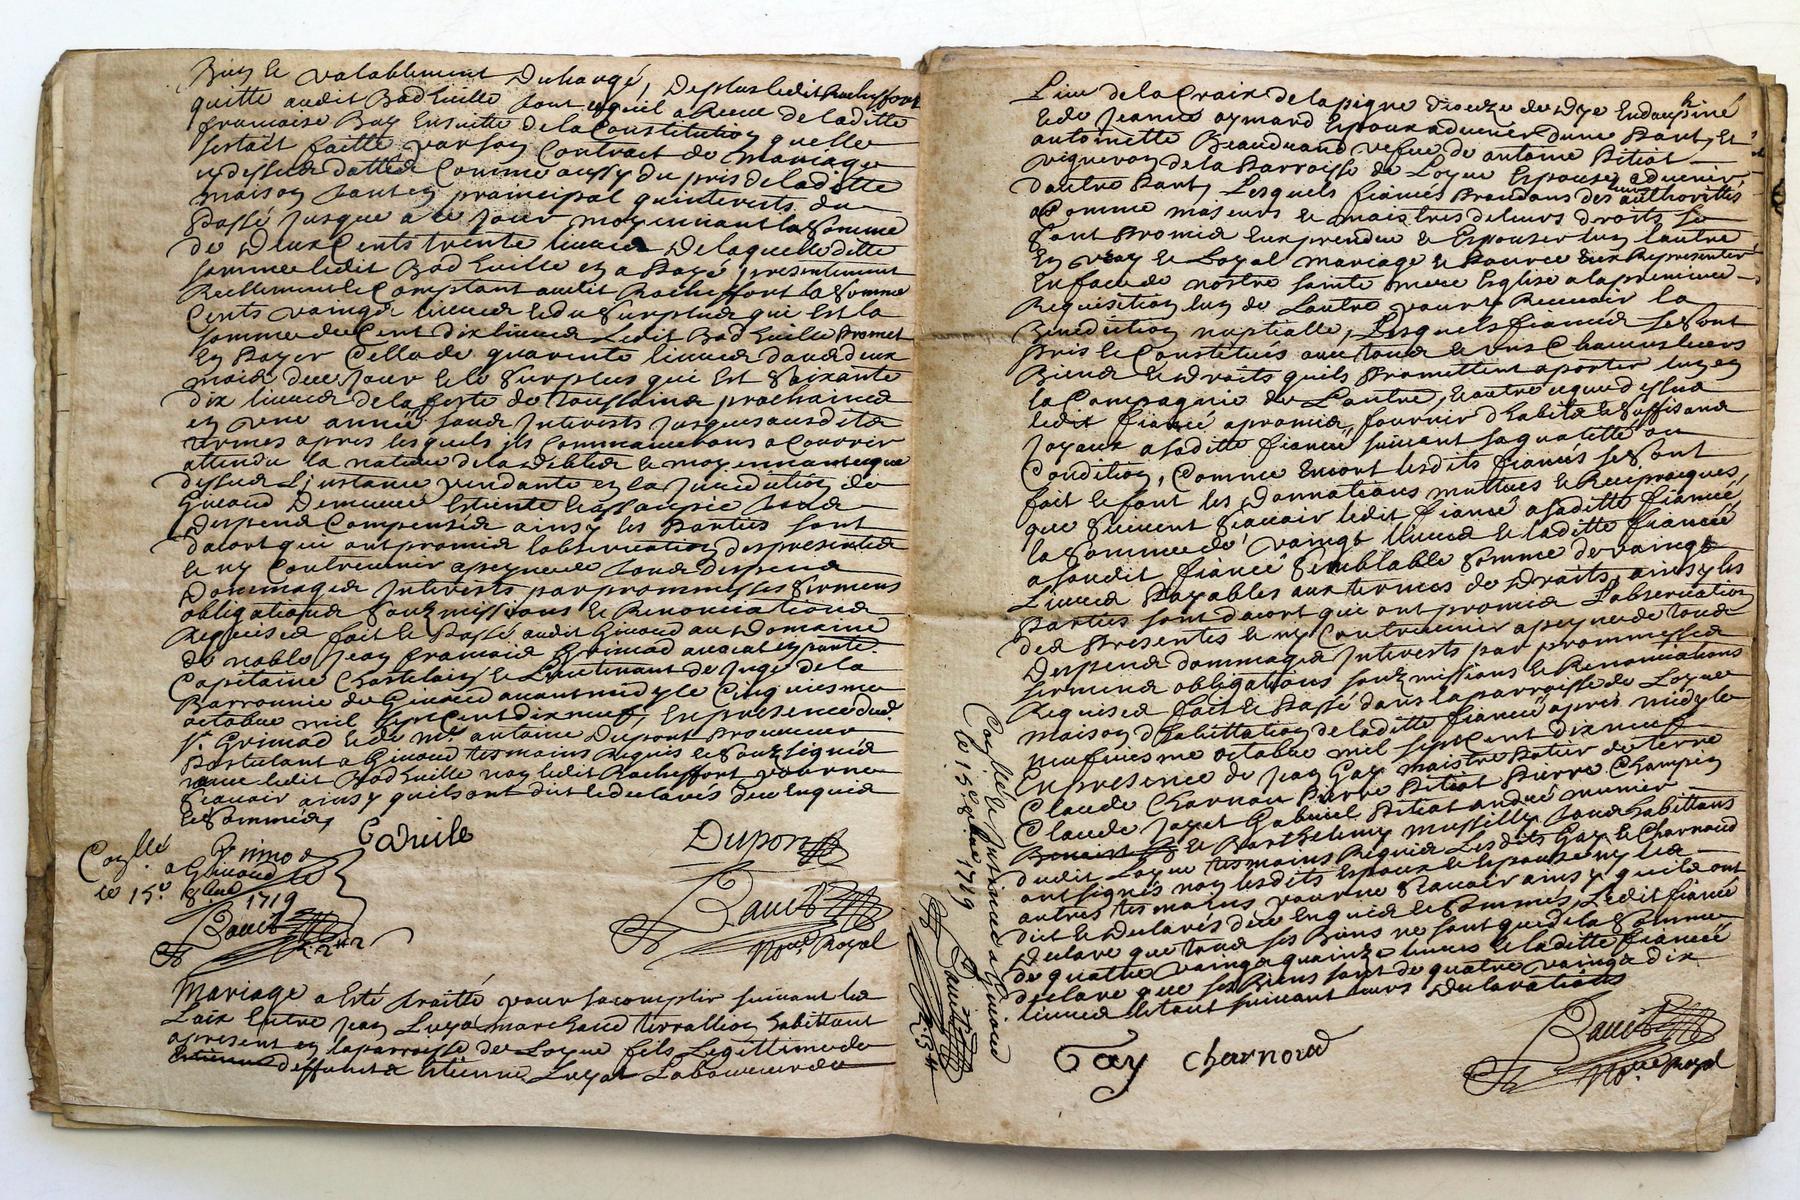 Bien et valablement dechargé, Deplus ledit Rocheffort
quitte audit Badheuille tout ce quil a Receu de laditte
francoise Bay Ensuitte de la Constitution quelle
sestait faitte par son Contrait de Mariage
cydessus datté Comme aussy du pris de laditte
maison tant en prainsipal quinterests du
Passé Jusque a ce Jour moyennant la Somme
de Deux Cents trente liures De laquelle ditte
somme ledit Badheuille en a Payé presentement
Reellement et Comptant audit Rocheffort la Somme
Cents vaingt liures et du Surplus qui est la
somme de Cent dix liures Ledit Badheuille Promet
En Payer Celle de quarente liures dans deux
mois de ce Jour et le Surplus qui est Soixante
dix liures de la feste de Toussaints prochaines
en une année sans Interests Jusques ausdits
termes apres lesquels ils Commancerons a Courrir
attendu la nature de la debte et moyennant ce que
dessus L'instance pendante en la Jurediction de
Giraud Demeure Esteinte et assoupie tous
Despens Compensés ainsy les Parties sont
dacort qui ont promis lobseruation des presentes
et ny Contreuenir a peyne de tous despens
Dommages Interests par prommesses Sermens
obligations Soubzmissions et Renonciations
Requises fait et Passé audit Giraud au Domaine
de noble Jean francois Grimod auocat en parle.
Capitaine Chastelain et Lieutenant de Juge de la
Barronnie de Giraud auant midy le Cinquiesme
octobre mil sept Cent dix neuf, En presence dud.
Sr. Grimod et de Me. antoine Dupont Procureur
Postulant a Giraud tesmoins Requis et Soubzsignés
auec ledit Badheuille non ledit Rocheffort pour ne
Scauoir ainsy quils ont dit et declarés de ce Enquis
et Sommés
Grimod Dupont
Conllé a Giraud
le 15e. 8bre 1719
Bauet
Bauet
No.re Royal
Mariage a Esté traitté pour sacomplir suiuant les
Loix Entre Jean Luya marchand terraillon habittant
apresent en la parroisse de Loyue fils Legittime de
deffunct Estienne Luya Laboureur du
Lieu de la Croix de la pigne dioceze de Dye En dauphiné
et de Jeanne aymard Espoux aduenir dune Part, Et
antoinette Beaudrand vefue de antoine Pitiot
vigneron de la Parroisse de Loyue Espouse aduenir
dautre Part, Lesquels fiancés Procedans des leurs authorittés
Comme majeurs et maistres de leurs droits se
sont Promis Eux prendre et Espouser lun lautre
En vray et Loyal mariage et Pource Eux Representer
En face de nostre sainte mere Eglise a la premiere
Requisition lun de Lautre pour y Receuoir la
Benediction nuptialle, Lesquels fiancés se Sont
Pris et Constitués auec tous et uns Chacuns leurs
Biens et droits quils Promettent aporter lun en
la Compagnie de Lautre, Et outre ce que dessus
ledit fiancé a promis fournir dhabits et Suffisans
Joyaux a saditte fiancée suiuant sa qualitté ou
Condition, Comme encort lesdits fiancés se Sont
fait et font les Donnations mutues et Reciproques,
que Suiuent Scauoir ledit fiancé a saditte fiancée
la Somme de vaingt liures et laditte fiancée
a sondit fiancé Semblable Somme de vaingt
Liures Payables aux termes de Droits, ainsy les
Parties sont dacort qui ont promis L'obseruation
des Presentes et ny Contreuenir a peyne de tous
Despens dommages Interests par prommesses
sermens obligations soubzmissions et Renonciations
Requises fait et Passé dans la parroisse de Loyue
maison d'habittation de laditte fiancée apres midy le
neufiesme octobre mil sept Cent dix neuf
En presence de Jean Gay maistre Potier de terre
Claude Charnou Pierre Pitiot Pierre Champin
Claude Jayet Gabriel Pitiot andré munier
et Barthelemy mussilly tous habittans
dudit Loyue tesmoins Requis Lesdits Gay et Charnoud
ont signés non lesdits Espoux et Espouse ny les
autres tesmoins pour ne Scauoir ainsy quils ont
dict et Declarés de ce Enquis et Sommés, Ledit fiancé
declare que tous ses Biens ne sont que de la Somme
de quatre vaingts quainze liures et laditte fiancée
declare que ses Biens sont de quatre vaingts dix
liures
Conllé a Giraud
le 15e. 8bre 1719
Bauet
Gay Charnoud
Bauet
No.re Royal